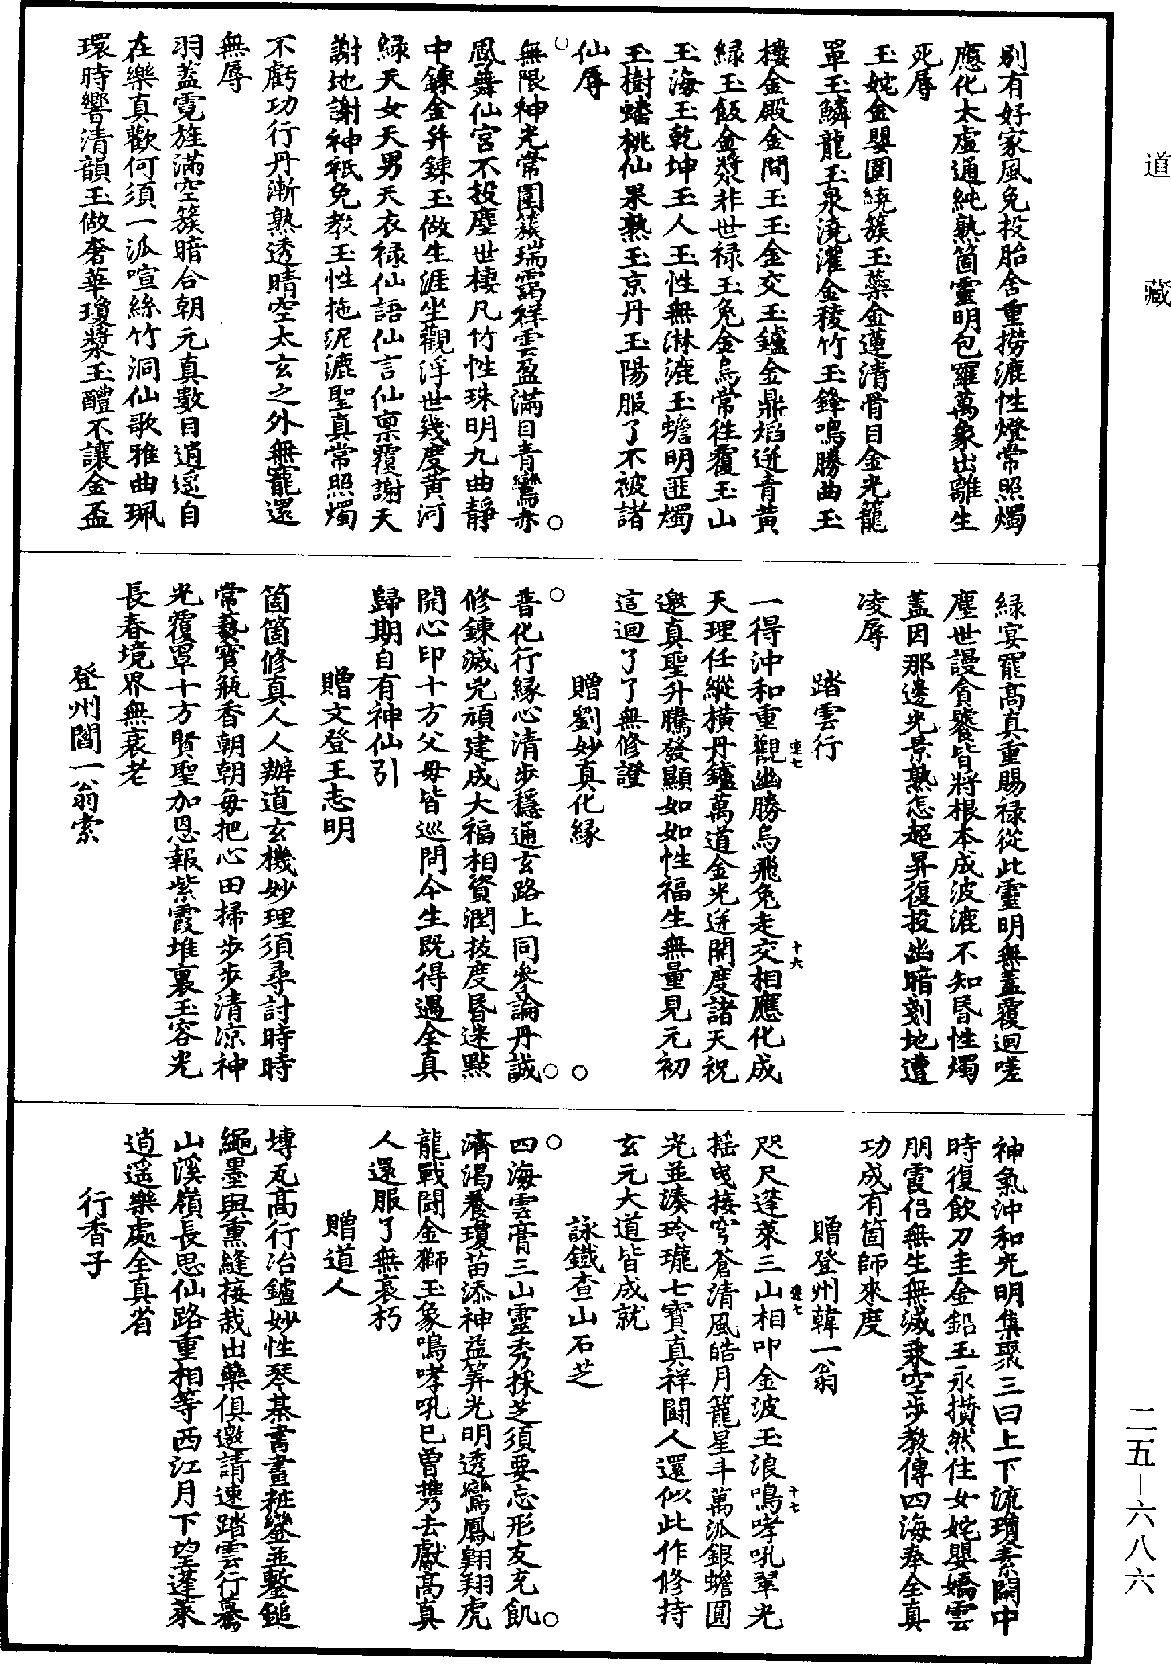 道藏
別有好家風免投胎舍重撈漉性燈常照燭
應化太虛通純熟箇靈明包羅萬象出離生
死辱
玉姹金嬰圍繞簇玉藥金蓮清骨目金光籠
罩玉鱗龍玉泉澆灌金稜竹玉鋒鳴勝曲玉
樓金殿金間玉玉金交玉鑪金鼎焰迸青黃
綠玉飯金漿非世祿玉兔金烏常往覆玉山
玉海玉乾坤玉人玉性無淋漉玉蟾明匪燭
玉樹蟠桃仙果熟玉京丹玉陽服了不被諸
仙辱
無限神光常圍簇瑞靄祥雲盈滿目青鸞赤
鳳舞仙宮不投塵世棲凡竹性珠明九曲靜
中鍊金并鍊玉做生涯坐觀浮世幾度黃河
綠天女天男天衣祿仙語仙言仙稟覆謝天
謝地謝神祇免教玉性拖泥漉聖真常照燭
不虧功行丹漸熟透晴空太玄之外無寵還
無辱
羽蓋霓旌滿空簇暗合朝元真數目逍遙自
在樂真歡何須一派喧絲竹洞仙歌雅曲珮
環時響清韻玉做奢華瓊漿玉醴不讓金盃
綠宴罷高真重賜祿從此靈明無蓋覆迴嗟
塵世謾貪饕皆將根本成波漉不知昏性燭
蓋因那邊光景熟怎超昇復投幽暗刻地遭
凌辱
踏雲行
一得沖和重觀幽勝烏飛兔走交相應化成
天理任縱橫丹鑪萬道金光迸開度諸天祝
邀真聖升騰發顯如如性福生無量見元初
這迴了了無修證
贈劉妙真化緣
普化行緣心清步穩通玄路上同參論丹誠
修鍊滅兇頑建成大福相資潤拔度昏迷點
開心印十方父母皆巡問今生既得遇全真
歸期自有神仙引
贈文登王志明
箇箇修真人人辦道玄機妙理須尋討時時
常爇寶瓶香朝朝每把心田掃步步清涼神
光覆罩十方賢聖加恩報紫霞堆裏玉容光
長春境界無衰老
登州閻一翁索
神氣沖和光明集聚三田上下流瓊素關中
時復飲刀圭金鉛玉永攢然住女姹嬰嬌雲
朋霞侶無生無滅乘空步教傳四海奉全真
功成有箇師來度
贈登州韓一翁
咫尺蓬萊三山相叩金波玉浪鳴哮吼翠光
搖曳接穹蒼清風皓月籠星斗萬派銀蟾圓
光並湊玲瓏七寶真祥鬪人還似此作修持
玄元大道皆成就
詠鐵查山石芝
四海雲膏三山靈秀採芝須要忘形友充飢
濟渴養瓊苗添神益筭光明透鸞鳳翱翔虎
龍戰鬪金獅玉象鳴哮吼已曾擕去獻高真
人還服了無衰朽
贈道人
塼瓦高行冶鑪妙性琴棊書畫粧鑾並鏨鎚
繩墨與熏縫接裁出藥俱邀請速踏雲行驀
山溪嶺長思仙路重相等西江月下望蓬萊
逍遙樂處全真省
行香子
二五-六八六